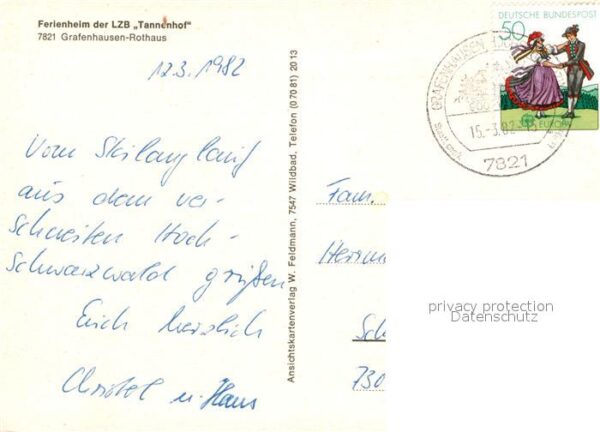 Ferienheim der LZB „Tannenhof"
7821 Grafenhausen-Rothaus
12.3.1982
Vom Skilanglauf
aus dem ver-
schneiten Hoch-
schwarzwald grüßen
Euch herzlich
Christel u. Hans
Ansichtskartenverlag W. Feldmann, 7547 Wildbad, Telefon (0 70 81) 20 13
DEUTSCHE BUNDESPOST
50
EUROPA
GRAFENHAUSEN
15.-3.82
7821
Fam.
Herrn
Sch
730
privacy protection
Datenschutz